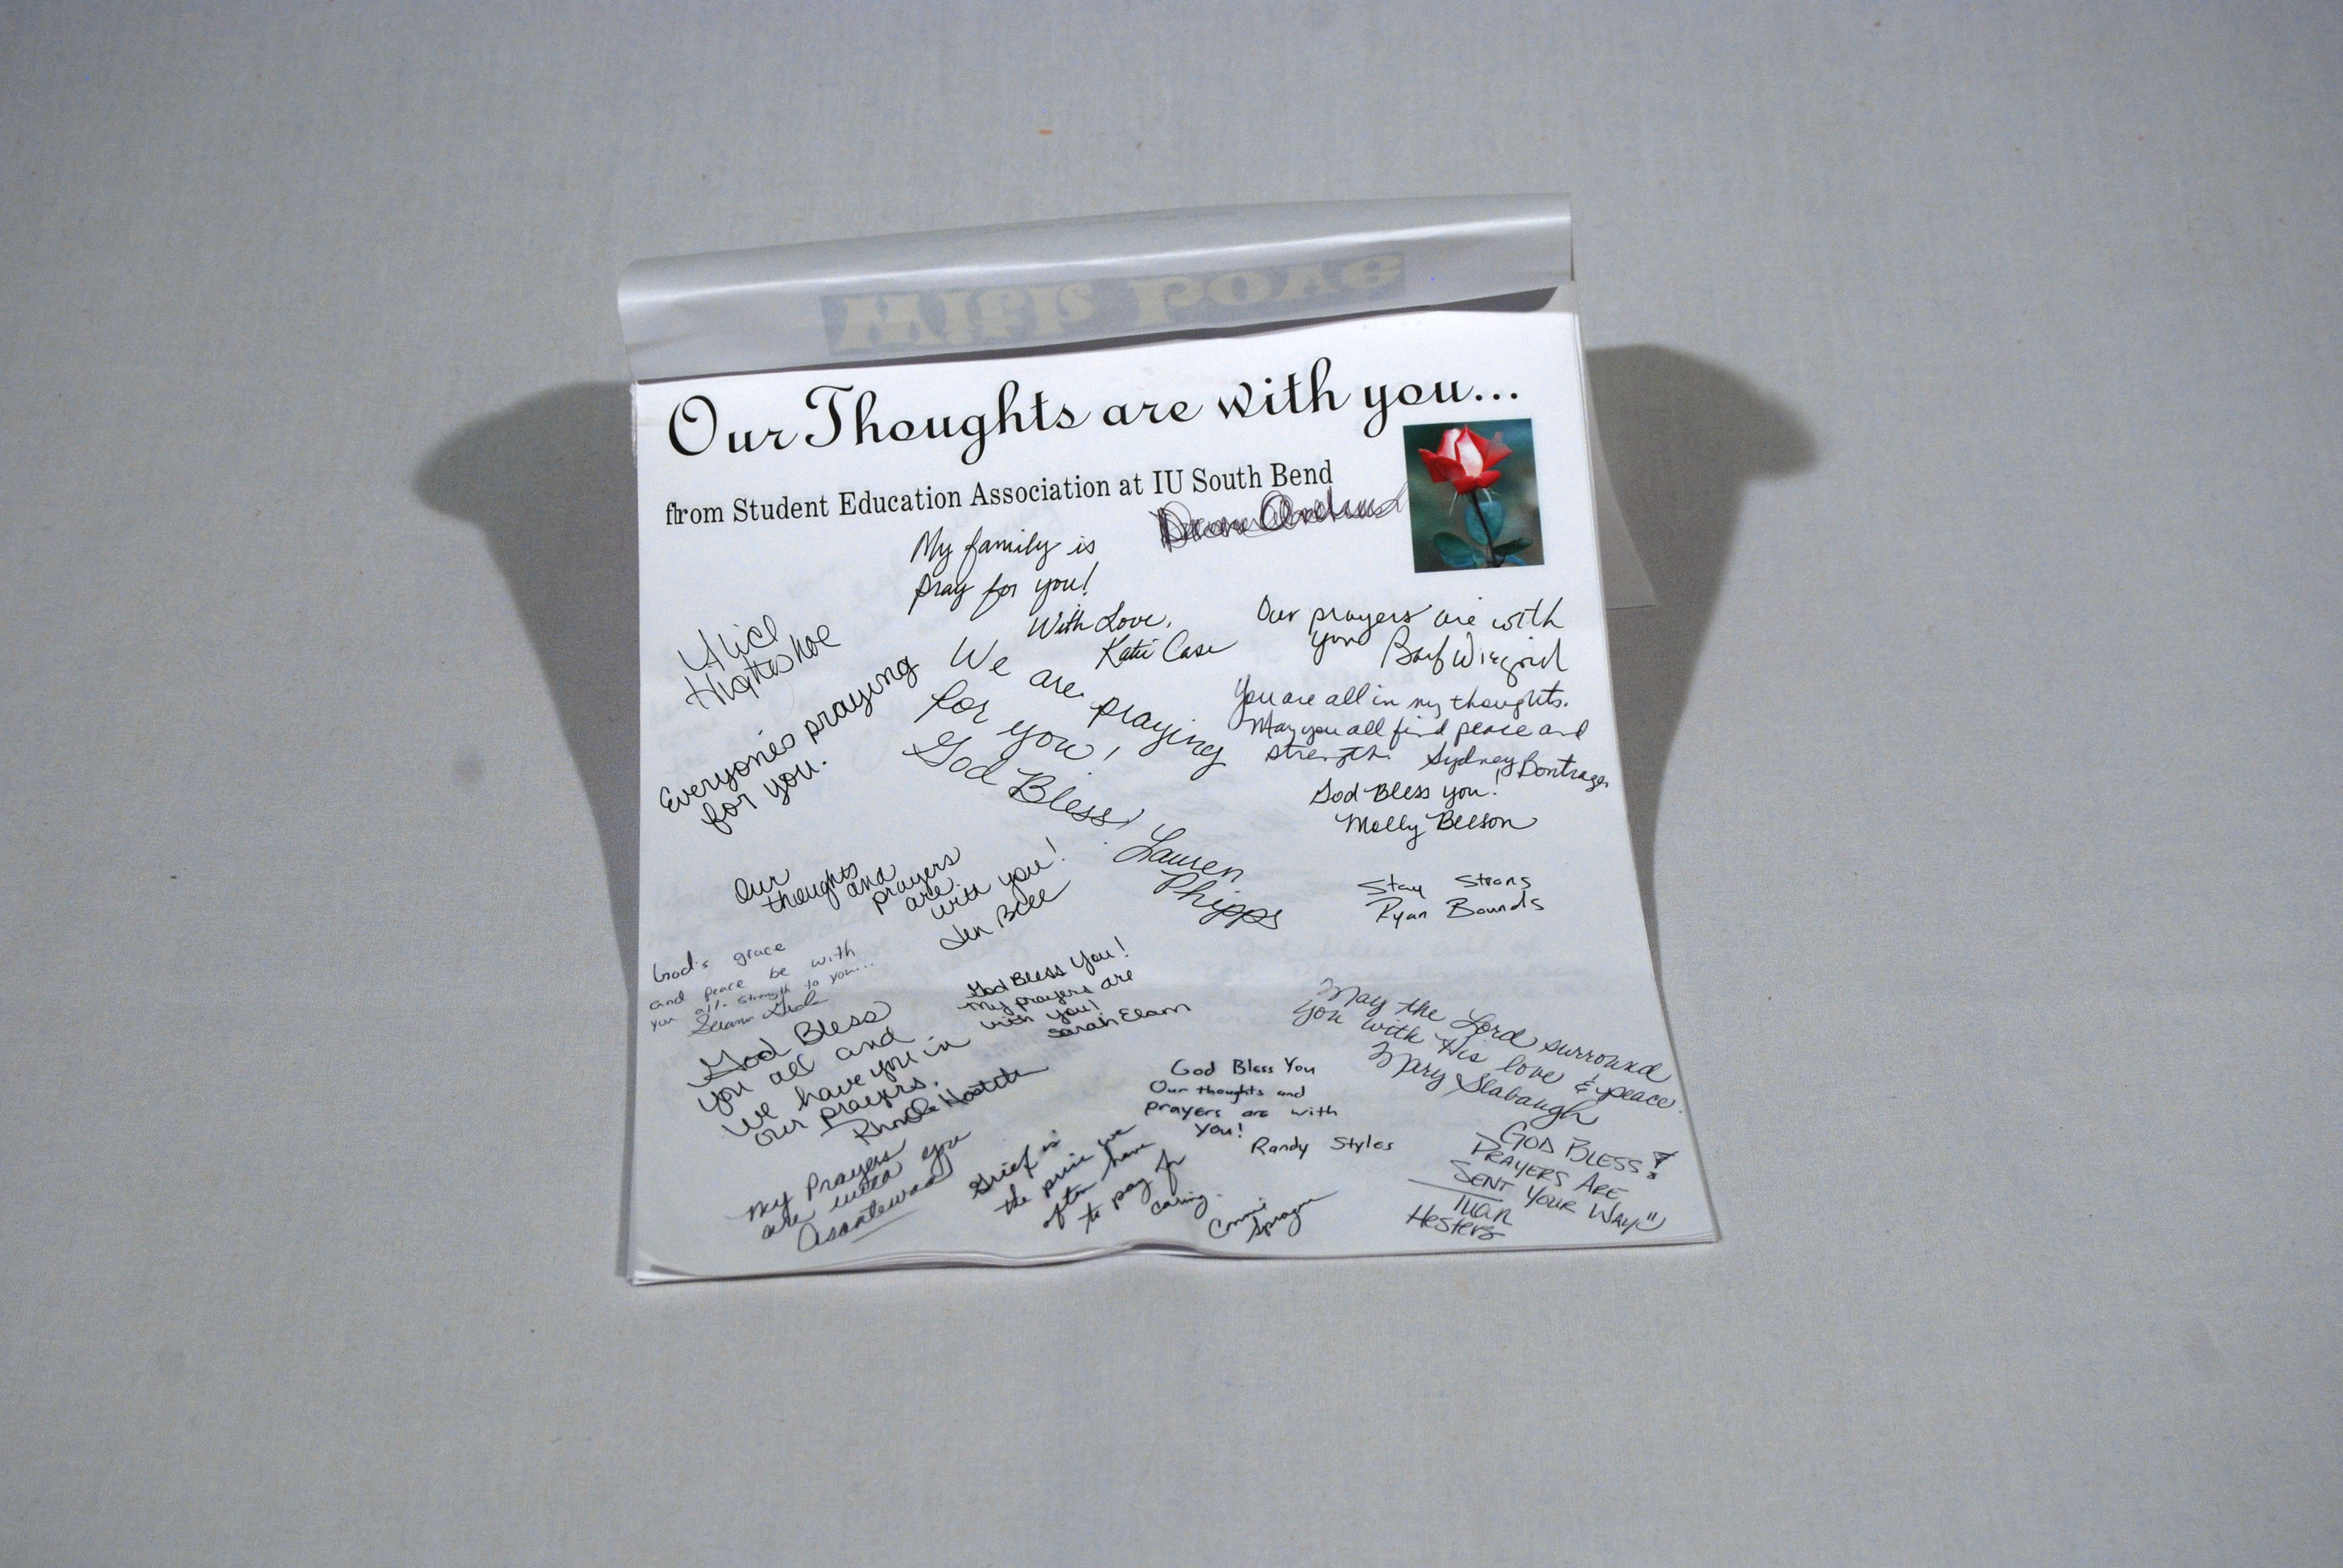 With Love
Our Thoughts are with you...
from Student Education Association at IU South Bend
My family is
pray for you!
With Love,
Katie Case
Our prayers are with
you
You are all in my thoughts.
May you all find peace and
strength. Sydney Bontrager
God Bless you!
Molly Beeson
Alice
Hightshoe
Everyone's praying
for you.
We are praying
for you!
God Bless!
Lauren
Phipps
Stay Strong
Ryan Bounds
Our
thoughts and
prayers
are
with you!
Jen Bell
God's grace
and peace be with
you all. Strength to you...
God Bless You!
My prayers are
with you!
Sarah Elam
God Bless
you all and
we have you in
our prayers.
May the Lord surround
you with His love & peace.
Mary Slabaugh
God Bless You
Our thoughts and
prayers are with
you!
Randy Styles
My Prayers
are with you
Asantewaa
Grief is
the price we
often have
to pay for
caring.
Connie
Sprague
GOD BLESS!
PRAYERS ARE
SENT YOUR WAY"
Hesters